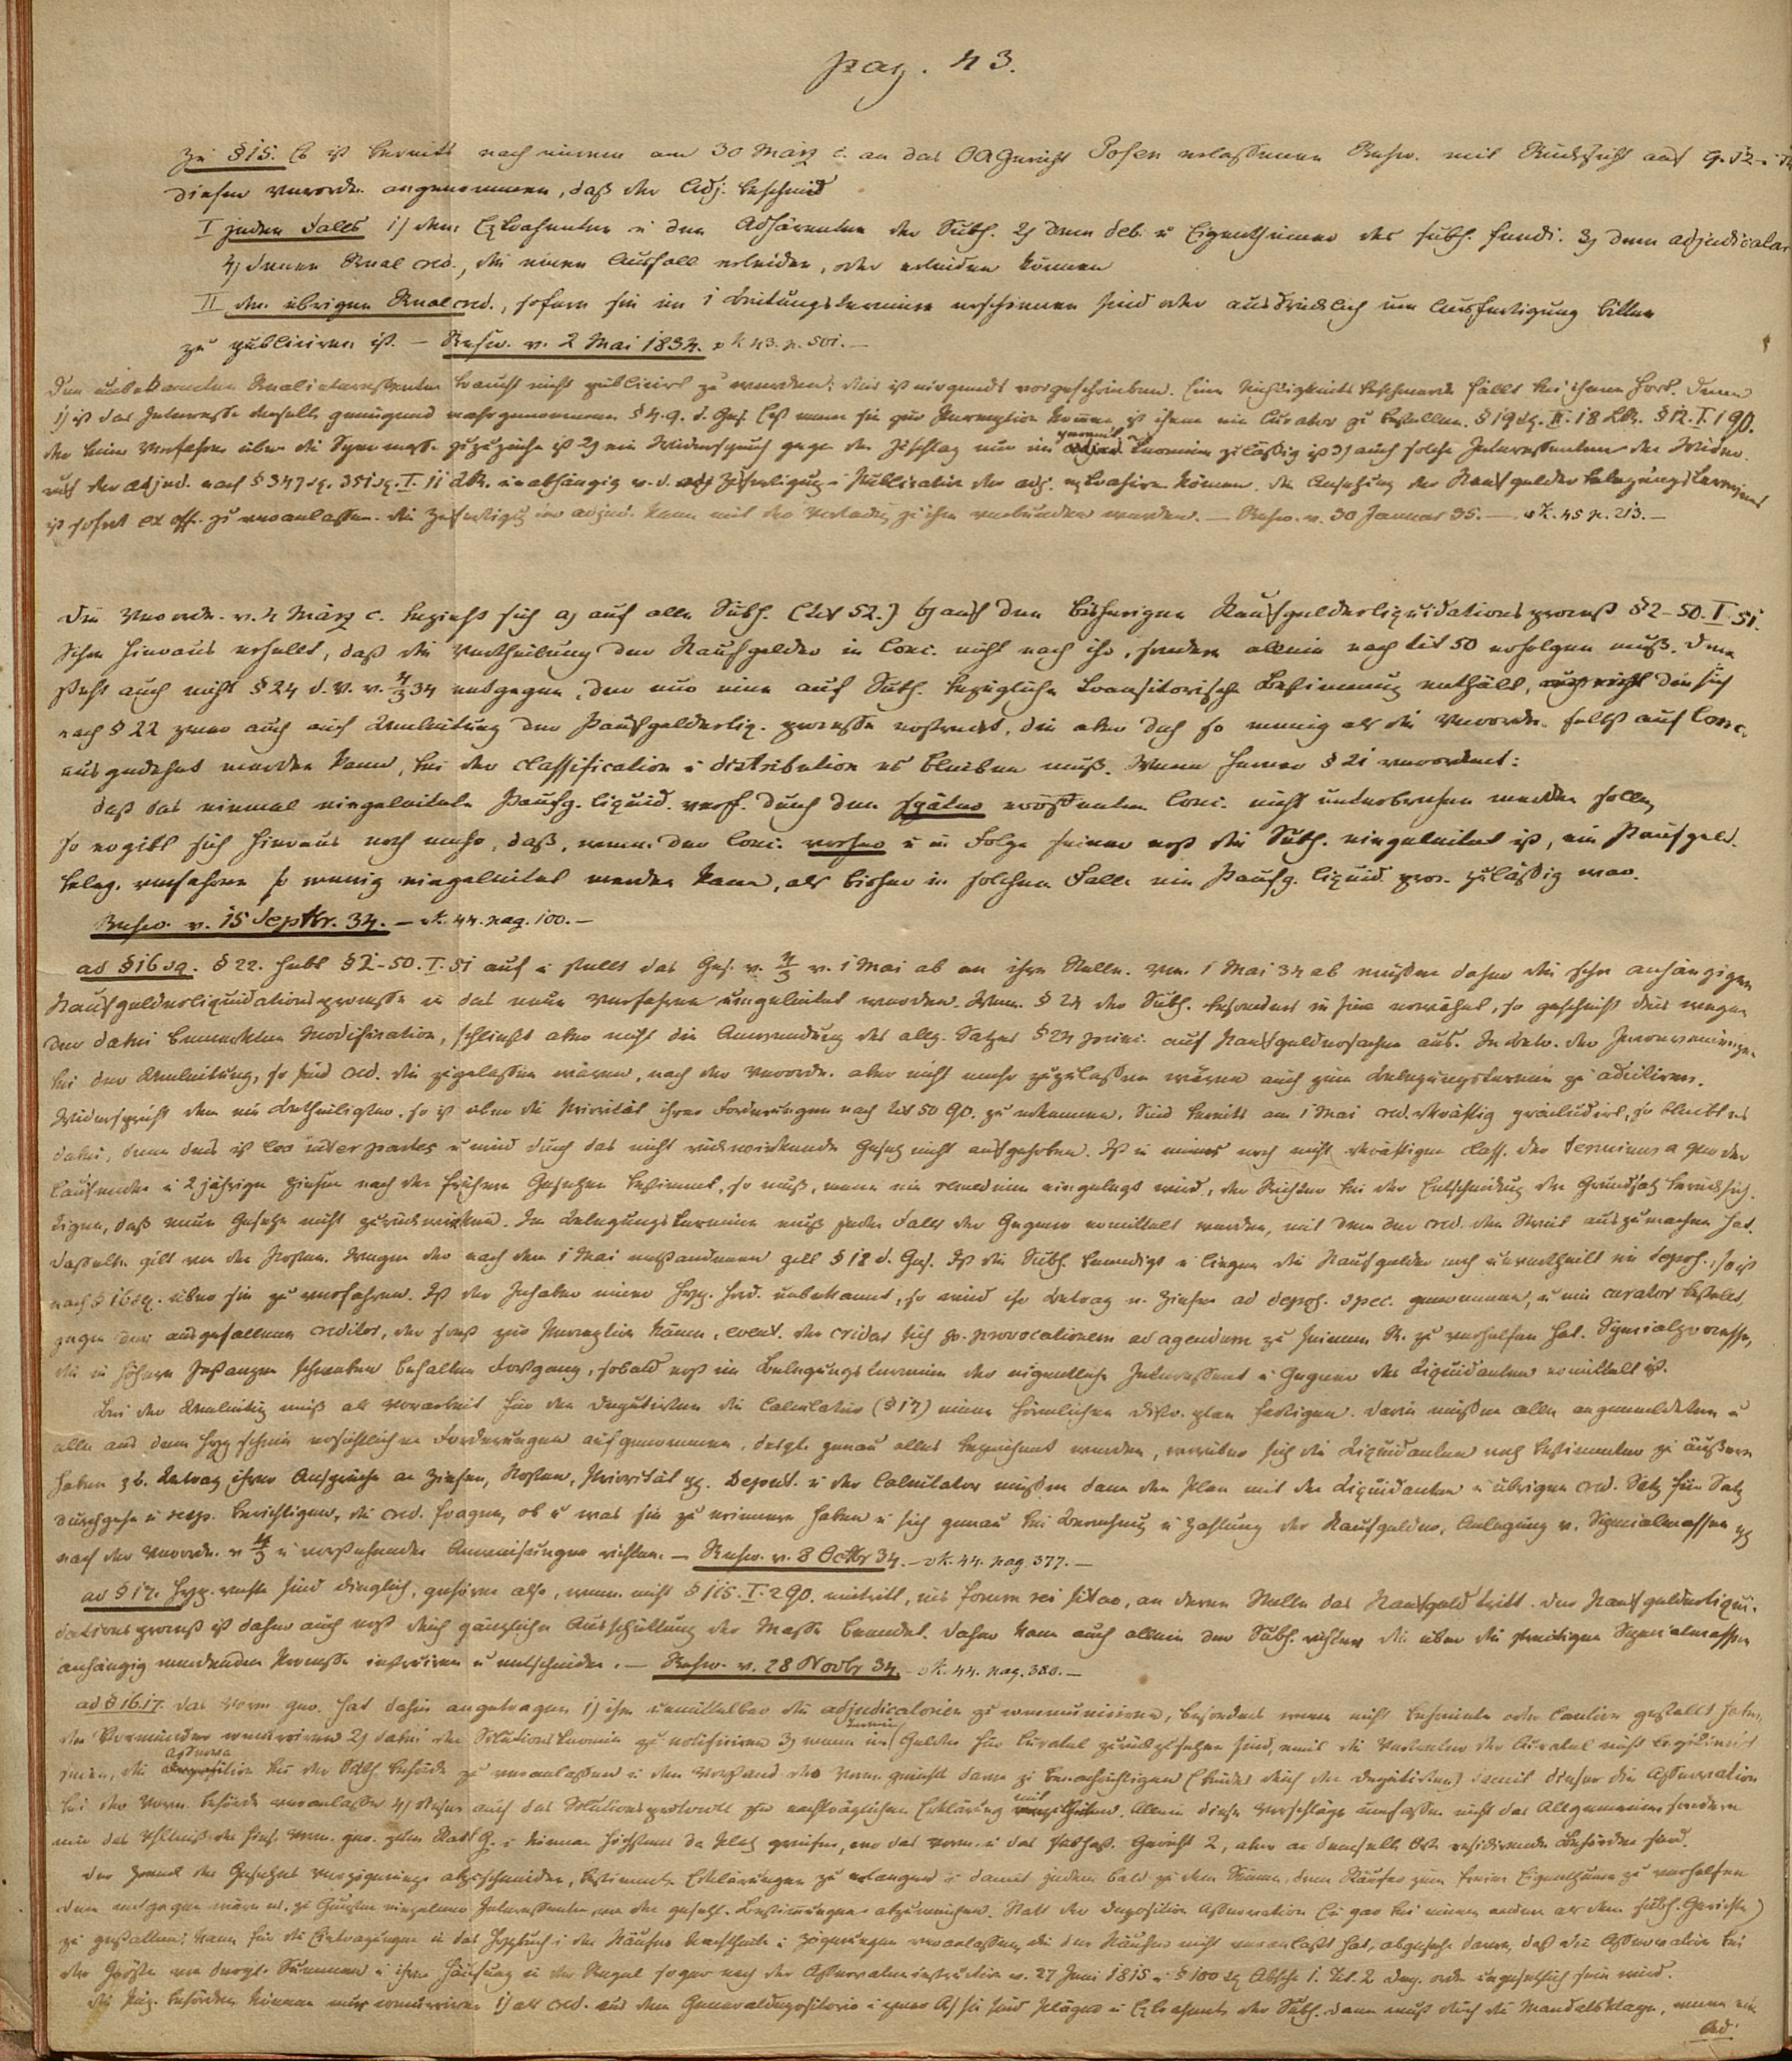 pag. 43.
Zu §15. Es ist bereits nach einem am 30 März c. an das OAGericht Posen erlassenen Rescr. mit Rücksicht auf
dieser Verordn. angenommen, daß der Adj. bescheid
I jeden Falls 1) dem Extrahenten u den Adhärenten der Subh. 2) dem deb. u Eigenthümer des subh. fundi. 3) dem adjudicatar
4) denen Real cred., die einen Ausfall erleiden, oder erleiden können
II den übrigen Realcred., sofern sie im Bietungstermine erschienen sind oder ausdrücklich um Ausfertigung bitten
zu publiciren ist. – Rescr. v. 2 Mai 1834. v K 43. p. 501. –
Den unbekannten Realinteressenten braucht nicht publicirt zu werden; dies ist nirgends vorgeschrieben. Eine Nichtigkeits beschwerde fällt bei ihnen fort. Denn
1) ist das Interesse derselben genügend wahrgenommen §4. 9. d. Ges. Läßt man sie zur Perception kommen, ist ihnen ein Curator zu bestellen. §19 sq. II. 18 LR. §12. I. 1 GO.
der beim Verfahren über die Specmasse zuzuziehen ist 2) ein Widerspruch gegen den Zuschlag nur im termine zuläßig ist 3) auch solche Interessenten den Widerr
ruf der Adjud. nach §347 sq. 351 sq. I. 11 LR. unabhängig v. d. Zufertigung u Publication der adj. extrahiren können. die Ansetzung des Kaufgelder belegungstermines
ist sofort ex off. zu veranlassen. die Zufertigung der adjud. kann mit der Vorladung zu ihm verbunden werden. – Rescr. v. 30 Januar 35. – v K. 45 p. 213. –
Die Verordn. v. 4 März c. bezieht sich a) auf alle Subh. (tit 52.) b) auf den bisherigen Kaufgelderliquidationsprozeß §2-50. I. 51.
Schon hieraus erhellt, daß die Vertheilung der Kaufgelder in Conc. nicht nach ihr, sondern allein nach tit 50 erfolgen muß. Dem
steht auch nicht §24 d. V. v. 4/3 34 entgegen, der nur eine auf Subh. bezügliche transitorische Bestimmung enthält, die sich
nach §22 zwar auch auf Einleitung der Kaufgelderliq. prozesse erstreckt, die aber doch so wenig als die Verordn. selbst auf Conc.
ausgedehnt werden kann, bei der classification u distribution es bleiben muß. Wenn ferner §21 verordnet:
daß das einmal eingeleitete Kaufg. liquid. verf. durch den später eröffneten Conc. nicht unterbrochen werden solle,
so ergibt sich hieraus noch mehr, daß, wenn der Conc. vorher u in Folge seiner erst die Subh. eingeleitet ist, ein Kaufgeld.
beleg. verfahren so wenig eingeleitet werden kann, als bisher in solchem Falle ein Kaufg. liquid. proz. zuläßig war.
Rescr. v. 15 Septbr. 34. – v K. 44. pag. 100. –
ad §16 sq. §22. hebt §2-50. I. 51 auf u stellt das Ges. v. 4/3 v. 1 Mai ab an ihre Stelle. Vom 1 Mai 34 ab müßen daher die schon anhängigen
Kaufgelderliquidationsprozesse in das neue Verfahren eingeleitet werden. Wenn §24 der Subh. besonders erwähnt, so geschieht dies wegen
der dabei bemerkten Modification, schließt aber nicht die Anwendung des allg. Satzes §24 princ. auf Kaufgeldersachen aus.
bei der Umleitung, so sind cred. die zugelassen wären, nach der Verordn. aber nicht mehr zuzulassen wären auch zum Belegungstermin zu adcitiren.
Widerspricht dem ein Betheiligter, so ist über die Priorität ihrer Forderungen nach tit 50 GO. zu erkennen. Sind bereits am 1 Mai cred. rkräftig präcludirt, so bleibt es
dabei, denn dies ist lex inter partes u wird durch das nicht rückwirkende Gesetz nicht aufgehoben. Ist in einer noch nicht rkräftigen class. der terminus a quo der
laufenden u 2 jährigen Zinsen nach den frühern Gesetzen bestimmt, so muß, wenn ein remedium eingelegt wird, der Richter bei der Entscheidung den Grundsatz berücksich.
tigen, daß neue Gesetze nicht zurückwirken. Im Belegungstermine muß jeden Falls der Gegner ermittelt werden, mit dem der cred. den Streit auszumachen hat.
Dasselbe gilt von den Kosten. Wegen der nach dem 1 Mai entstandenen gilt §18 d. Ges. Ist die Subh. beendigt u liegen die Kaufgelder noch unvertheilt im depos., so ist
nach §16 sq. über sie zu verfahren. Ist der Inhaber einer Hyp. ford. unbekannt, so wird ihr Betrag u. Zinsen ad depos. spec. genommen, u ein curator bestellt,
gegen den ausgefallenen creditor, der sonst zur Perception käme, event. der cridar sich per provocationem ad agendum zu seinem R. zu verhelfen hat. Specialprozesse,
die in höhern Instanzen schweben behalten Fortgang, sobald erst im Belegungstermin der eigentliche Interessent u Gegner des Liquidanten ermittelt ist.
Bei der Einleitung muß als Vorarbeit für den Deputirten die Calculatur (§17) einen förmlichen distr. plan fertigen. Darin müßen alle angemeldeten u
alle aus dem Hyp schein ersichtlichen Forderungen aufgenommen, desgl. genau alles bezeichnet werden, worüber sich die Liquidanten noch bestimmter zu äußern
haben z b. Betrag ihrer Ansprüche an Zinsen, Kosten, Priorität pp. Deput. u der Calculator müßen dann den Plan mit den Liquidanten u übrigen cred. Satz für Satz
durchgehn u resp. berichtigen, die cred. fragen, ob u was sie zu erinnern haben u sich genau bei Berechnung u Zahlung der Kaufgelder, Anlegung v. Specialmassen pp
nach der Verordn. v 4/3 u vorstehenden Anweisungen richten. – Rescr. v. 8 Octbr 34. – v K. 44. pag. 377. –
ad §17. Hyp. rechte sind dinglich, gehören also, wenn nicht §115. I. 2 GO. eintritt, ins forum rei sitae, an deren Stelle das Kaufgeld tritt. Der Kaufgelderliqui.
dationsprozeß ist daher auch erst durch gänzliche Ausschüttung der Masse beendet. Daher kann auch allein der Subh. richter die über die streitigen Specialmassen
anhängig werdenden Prozesse instruiren u entscheiden. – Rescr. v. 28 Novbr 34. – v K. 44. pag. 380. –
ad §16.17. das Vorm. ger. hat dahin angetragen 1) ihm unmittelbar die adjudicatorien zu communiciren, besonders wenn nicht
die Vormünder 2) dabei den Solutionstermin zu notificiren 3) wenn im Termin Gelder für Curatel zurückzusetzen sind, weil die Vertreter der Curatel nicht legitimirt
seien, die Asserva tion bei der Subh. behörde zu veranlassen u den Vorstand des Vorm. gerichts davon zu benachrichtigen damit dieser die Asservation
bei der Vorm. behörde veranlasse 4) auch das Solutionsprotocoll zur nachträglichen Erklärung mit zutheilen. Allein diese Vorschläge umfassen nicht das Allgemeine sondern
nur das Vhltniß des hies. Vorm. ger. zum StadtG. u können höchstens da Platz greifen, wo das Vorm. u das Subhast. Gericht 2, aber an demselben Ort residirende Behörden sind.
Der Zweck des Gesetzes Verzögerungen abzuschneiden, bestimmte Erklärungen zu erlangen u damit jedem bald zu dem Seinen, dem Käufer zum freien Eigenthume zu verhelfen
dem entgegen wäre es, zu Gunsten einzelner Interessenten von den gesetzl. Bestimmungen abzuweichen. Statt der Deposition Asservation (u gar bei einem andern als dem subh. Gerichte)
zu gestatten, kann für die Eintragungen in das Hypbuch u den Käufer Nachtheile u Zögerungen veranlassen, die der Käufer nicht veranlaßt hat, abgesehn davon, daß die Asservation bei
der Größe von dergl. Summen u ihrer Häufung in der Regel sogar nach der Asservateninstruction v. 27 Juni 1815 u §100 sq Abschn 1. Tit. 2 Dep. ordn ungesetzlich sein wird.
Die Behörden können nur concurriren 1) als cred. aus dem Generaldepositorio u zwar A) sie sind Kläger u Extrahent der Subh. dann muß durch die Mandatsklage, wenn ein
Ad.